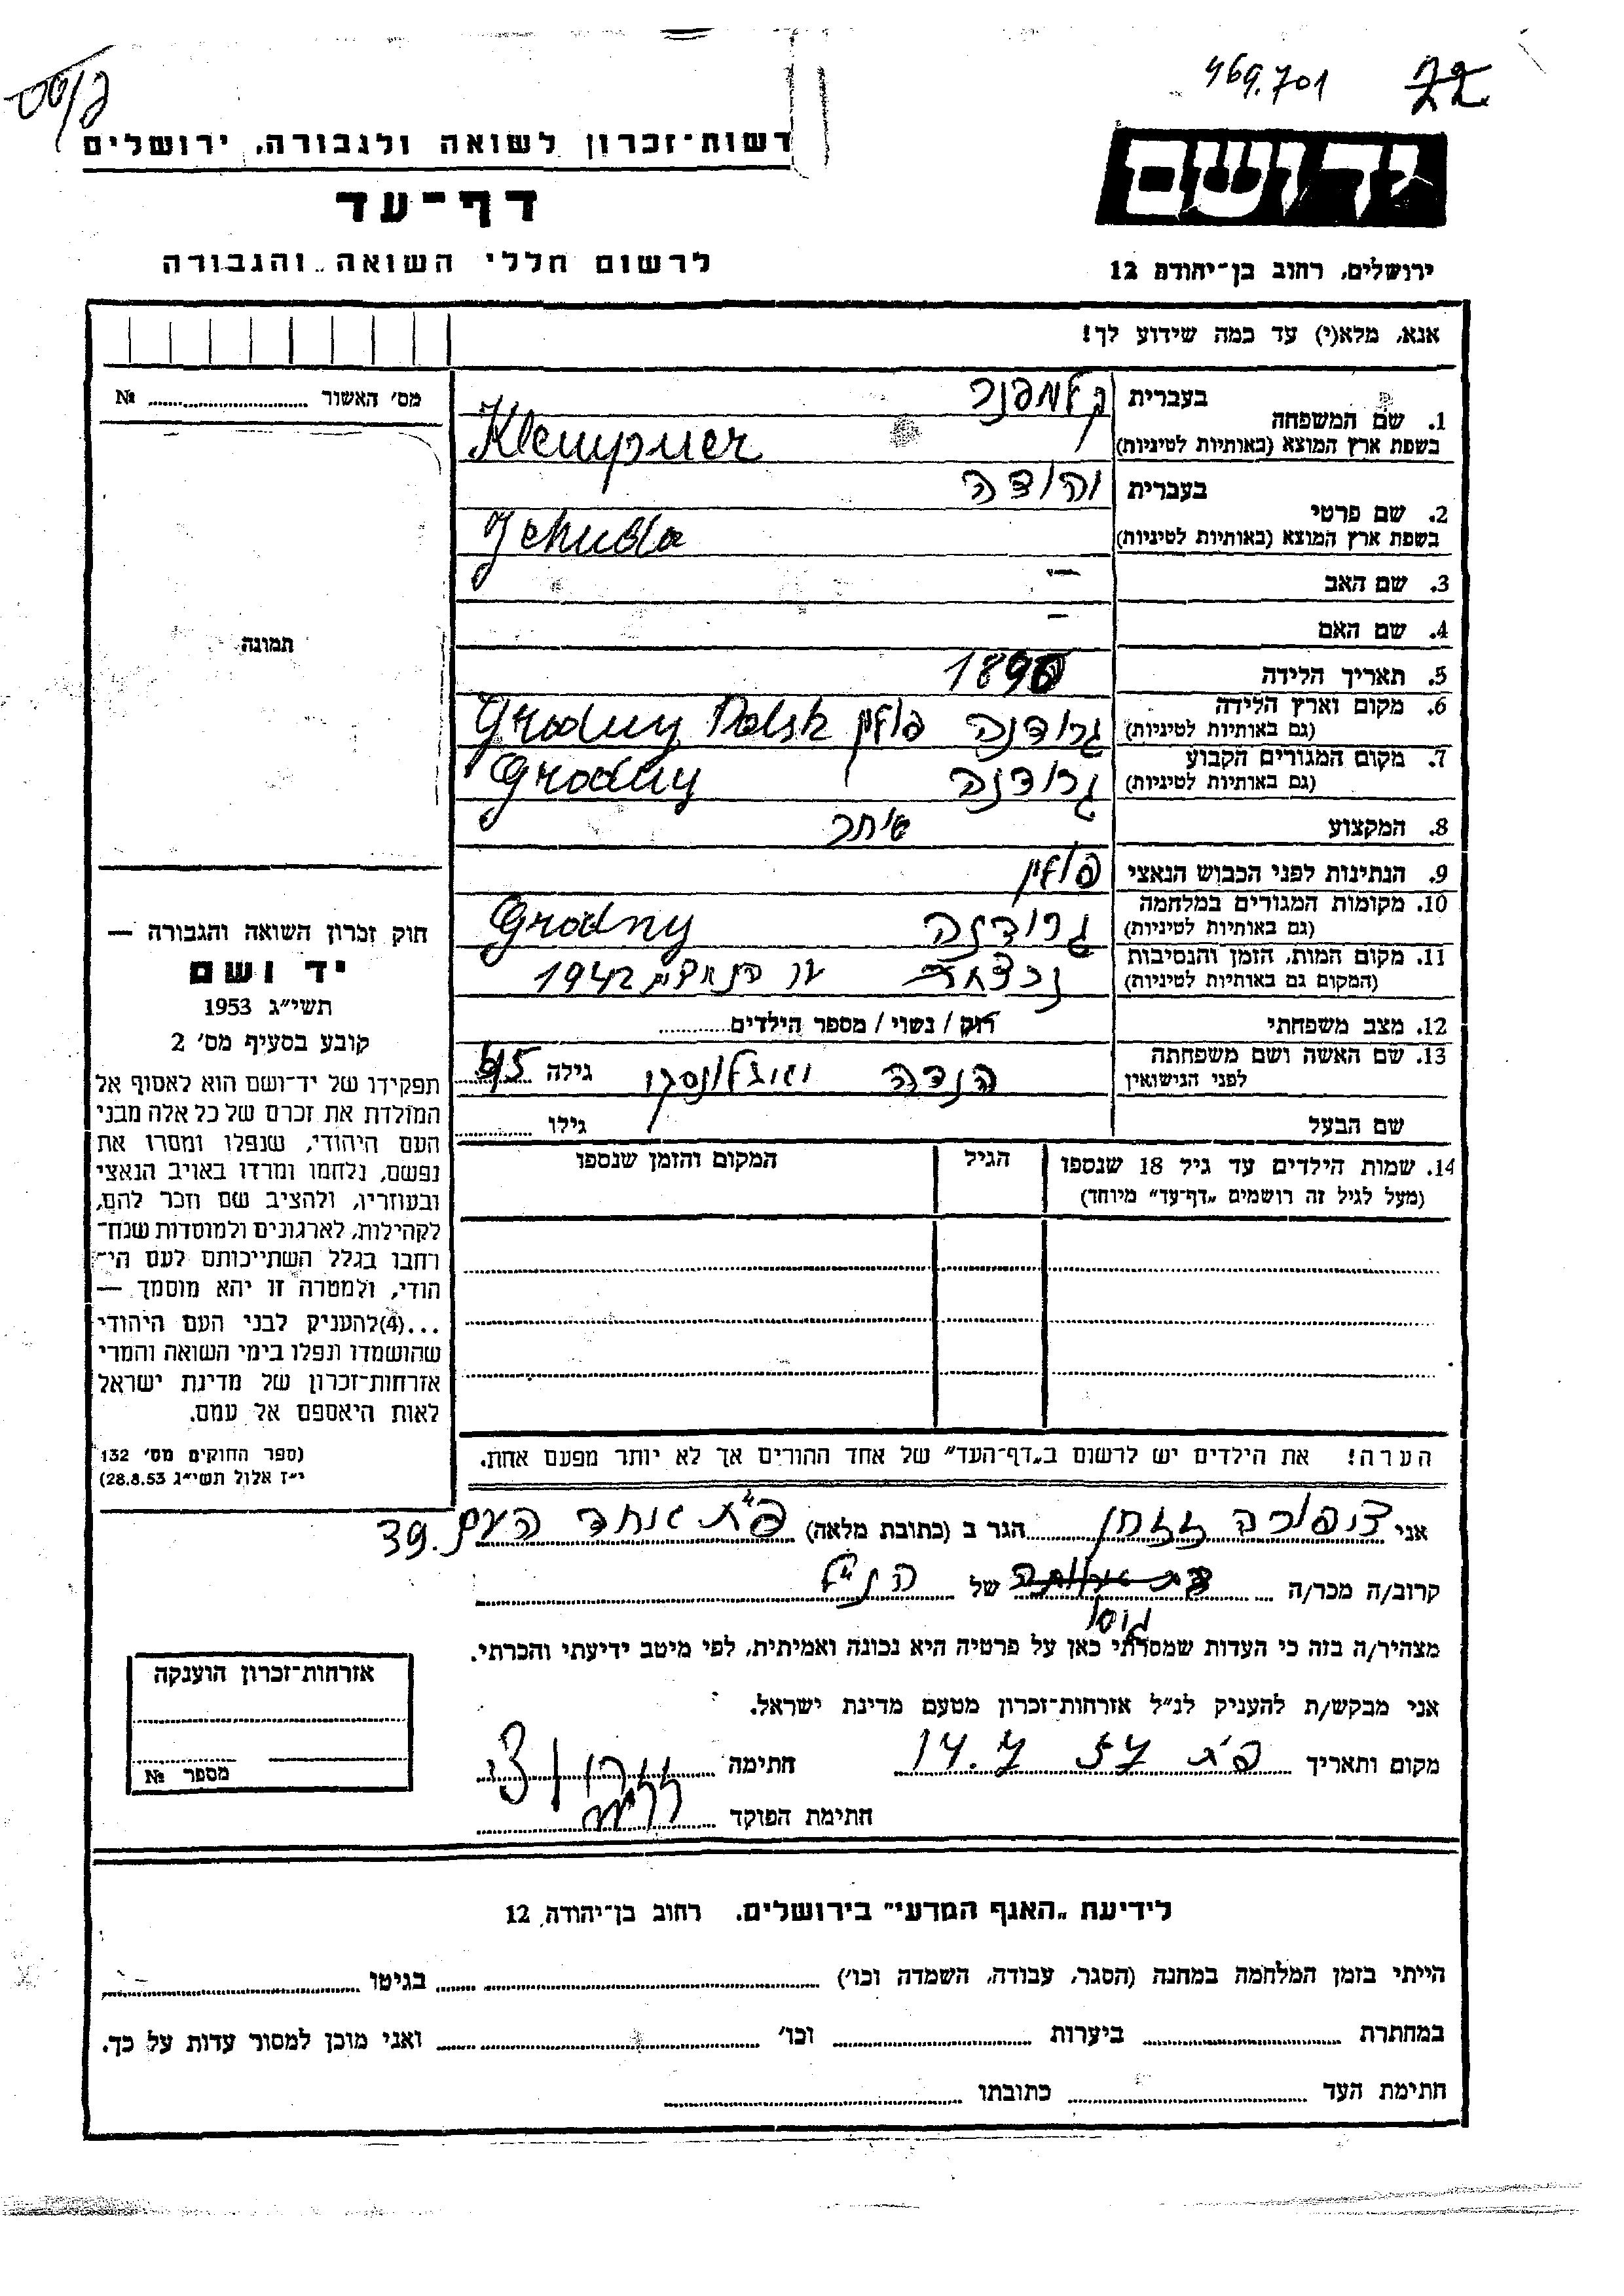 469.701 72
רשות־זכרון לשואה ולגבורה, ירושלים
יד ושם
דף־עד
לרשום חללי השואה והגבורה
ירושלים, רחוב בן־יהודה 12
אנא, מלא(י) עד כמה שידוע לך!
מס׳ האשור ........ №
1. שם המשפחה בעברית קלמפנר
בשפת ארץ המוצא (באותיות לטיניות) Klempner
2. שם פרטי בעברית יהודה
בשפת ארץ המוצא (באותיות לטיניות) Jehuda
3. שם האב —
4. שם האם —
תמונה
5. תאריך הלידה 1890
6. מקום וארץ הלידה (גם באותיות לטיניות) גרודנה פולין Grodny Polsk
7. מקום המגורים הקבוע (גם באותיות לטיניות) גרודנה Grodny
8. המקצוע סוחר
9. הנתינות לפני הכבוש הנאצי פולין
10. מקומות המגורים במלחמה (גם באותיות לטיניות) גרודנה Grodny
11. מקום המות, הזמן והנסיבות (המקום גם באותיות לטיניות) 1942
12. מצב משפחתי רוק / נשוי / מספר הילדים........
13. שם האשה ושם משפחתה לפני הנישואין הנדה גילה 45
שם הבעל גילו ........
14. שמות הילדים עד גיל 18 שנספו (מעל לגיל זה רושמים „דף־עד״ מיוחד) הגיל המקום והזמן שנספו
חוק זכרון השואה והגבורה —
יד ושם
תשי״ג 1953
קובע בסעיף מס׳ 2
תפקידו של יד־ושם הוא לאסוף אל
המולדת את זכרם של כל אלה מבני
העם היהודי, שנפלו ומסרו את
נפשם, נלחמו ומרדו באויב הנאצי
ובעוזריו, ולהציב שם וזכר להם,
לקהילות, לארגונים ולמוסדות שנח־
רחבו בגלל השתייכותם לעם הי־
הודי, ולמטרה זו יהא מוסמך —
...(4)להעניק לבני העם היהודי
שהושמדו ונפלו בימי השואה והמרי
אזרחות־זכרון של מדינת ישראל
לאות היאספם אל עמם.
(ספר החוקים מס׳ 132
י״ז אלול תשי״ג 28.8.53)
הערה! את הילדים יש לרשום ב„דף־העד״ של אחד ההורים אך לא יותר מפעם אחת.
אני צפורה זזחן הגר ב (כתובת מלאה) פ״ת אחד העם 39.
קרוב/ה מכר/ה גיסו של הנ״ל
מצהיר/ה בזה כי העדות שמסרתי כאן על פרטיה היא נכונה ואמיתית, לפי מיטב ידיעתי והכרתי.
אני מבקש/ת להעניק לנ״ל אזרחות־זכרון מטעם מדינת ישראל.
מקום ותאריך פ״ת 14.7 57 חתימה
חתימת הפוקד
אזרחות־זכרון הוענקה
מספר №
לידיעת „האגף המדעי״ בירושלים, רחוב בן־יהודה 12
הייתי בזמן המלחמה במחנה (הסגר, עבודה, השמדה וכו׳) ........ בגיטו ........
במחתרת ........ ביערות ........ וכו׳ ........ ואני מוכן למסור עדות על כך.
חתימת העד ........ כתובתו ........